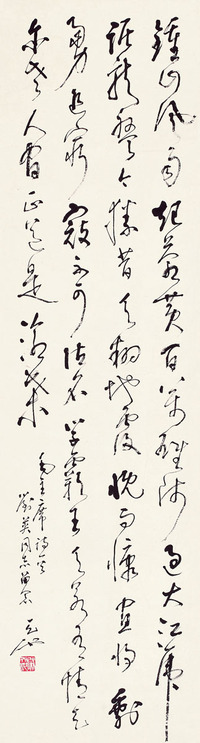 鍾山风雨起蒼黄百万雄师过大江虎
踞龙盘今勝昔天翻地覆慨而慷宜将剩
勇追窮寇不可沽名学霸王天若有情天
亦老人间正道是滄桑
毛主席诗
劉英同志留念